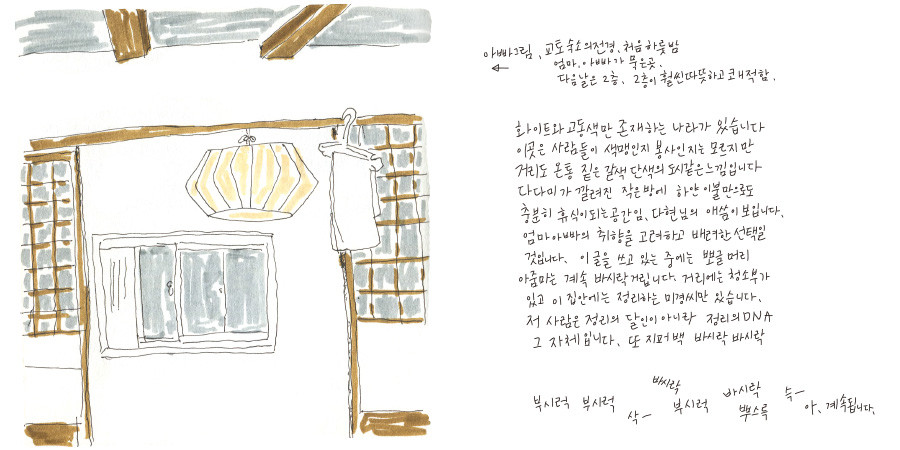 아빠그림, 교토숙소의전경, 처음 하룻밤
엄마, 아빠가 묵은곳.
다음날은 2층, 2층이 훨씬따뜻하고 쾌적함.
화이트와 고동색만 존재하는 나라가 있습니다
이곳은 사람들이 색맹인지 봉사인지는 모르지만
거리도 온통 짙은 갈색 단색의 도시같은느낌입니다
다다미가 깔려진 작은방에 하얀 이불만으로도
충분히 휴식이되는공간임, 다현님의 애씀이보입니다.
엄마아빠의 취향을 고려하고 배려한 선택일
것입니다. 이글을 쓰고 있는 중에는 뽀글머리
아줌마는 계속 바시락거립니다 거리에는 청소부가
있고 이 집안에는 정리하는 미경씨만 있습니다.
저 사람은 정리의 달인이 아니라 정리의DNA
그 자체입니다. 또 지퍼백 바시락 바시락
바시락 바시락 슥ㅡ
부시럭 부시럭 삭ㅡ 부시럭 뿌스륵 아, 계속됩니다.